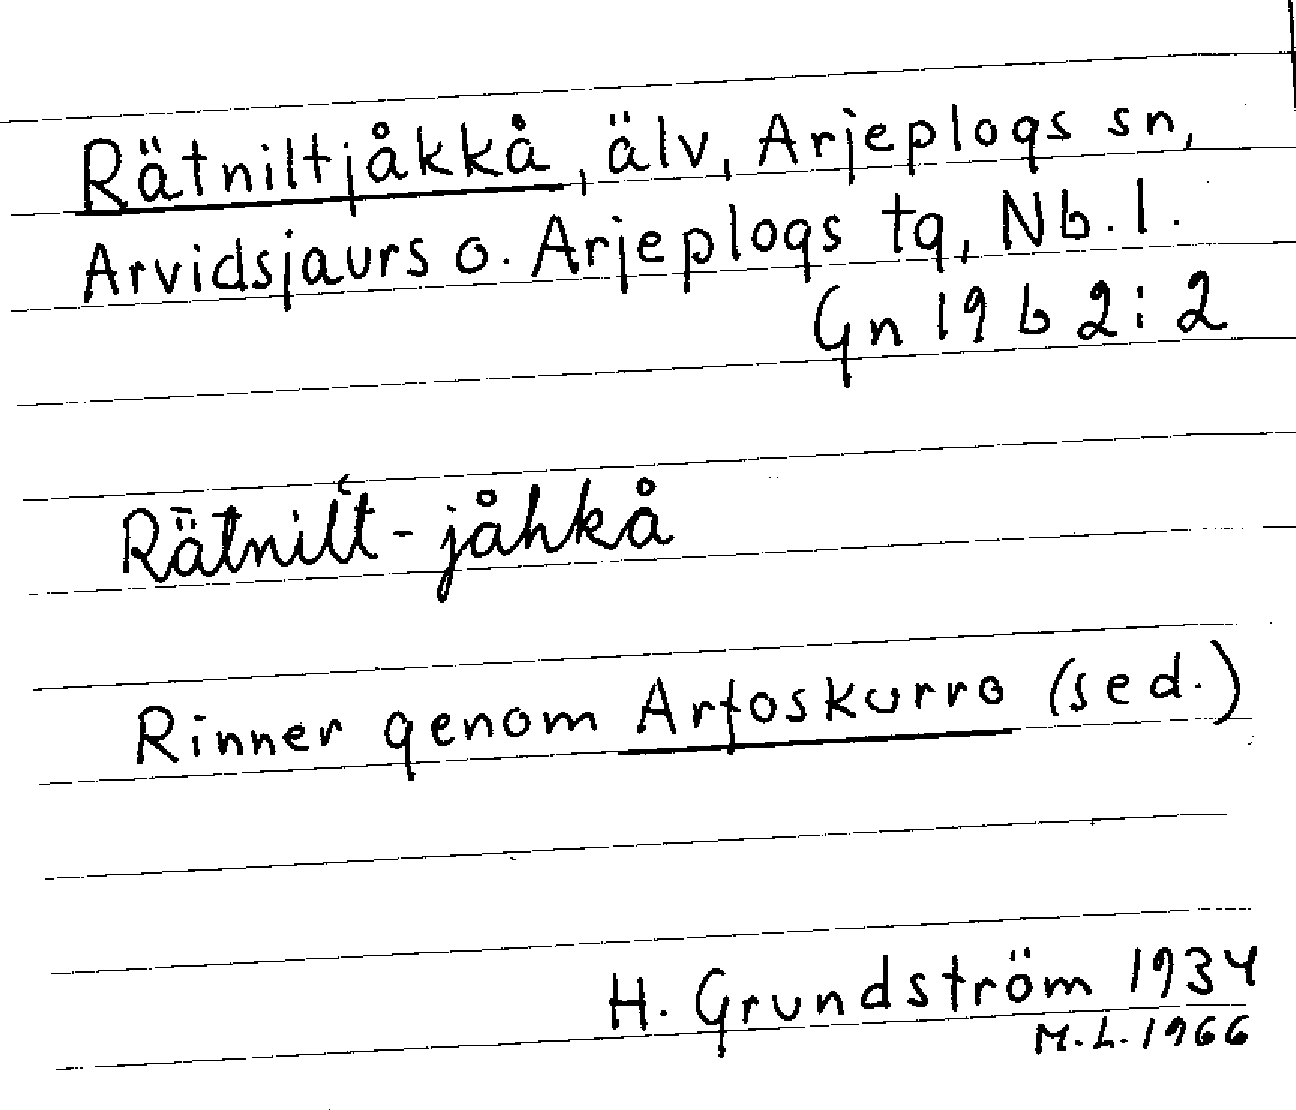 Rätniltjåkkå, älv, Arjeplogs sn,
Arvidsjaurs o. Arjeplogs tg, Nb. l.
Gn 19 b 2:2
Rätnilt́-jåhkå
Rinner genom Arfoskurro (sed.)
H. Grundström 1934
M.L. 1966